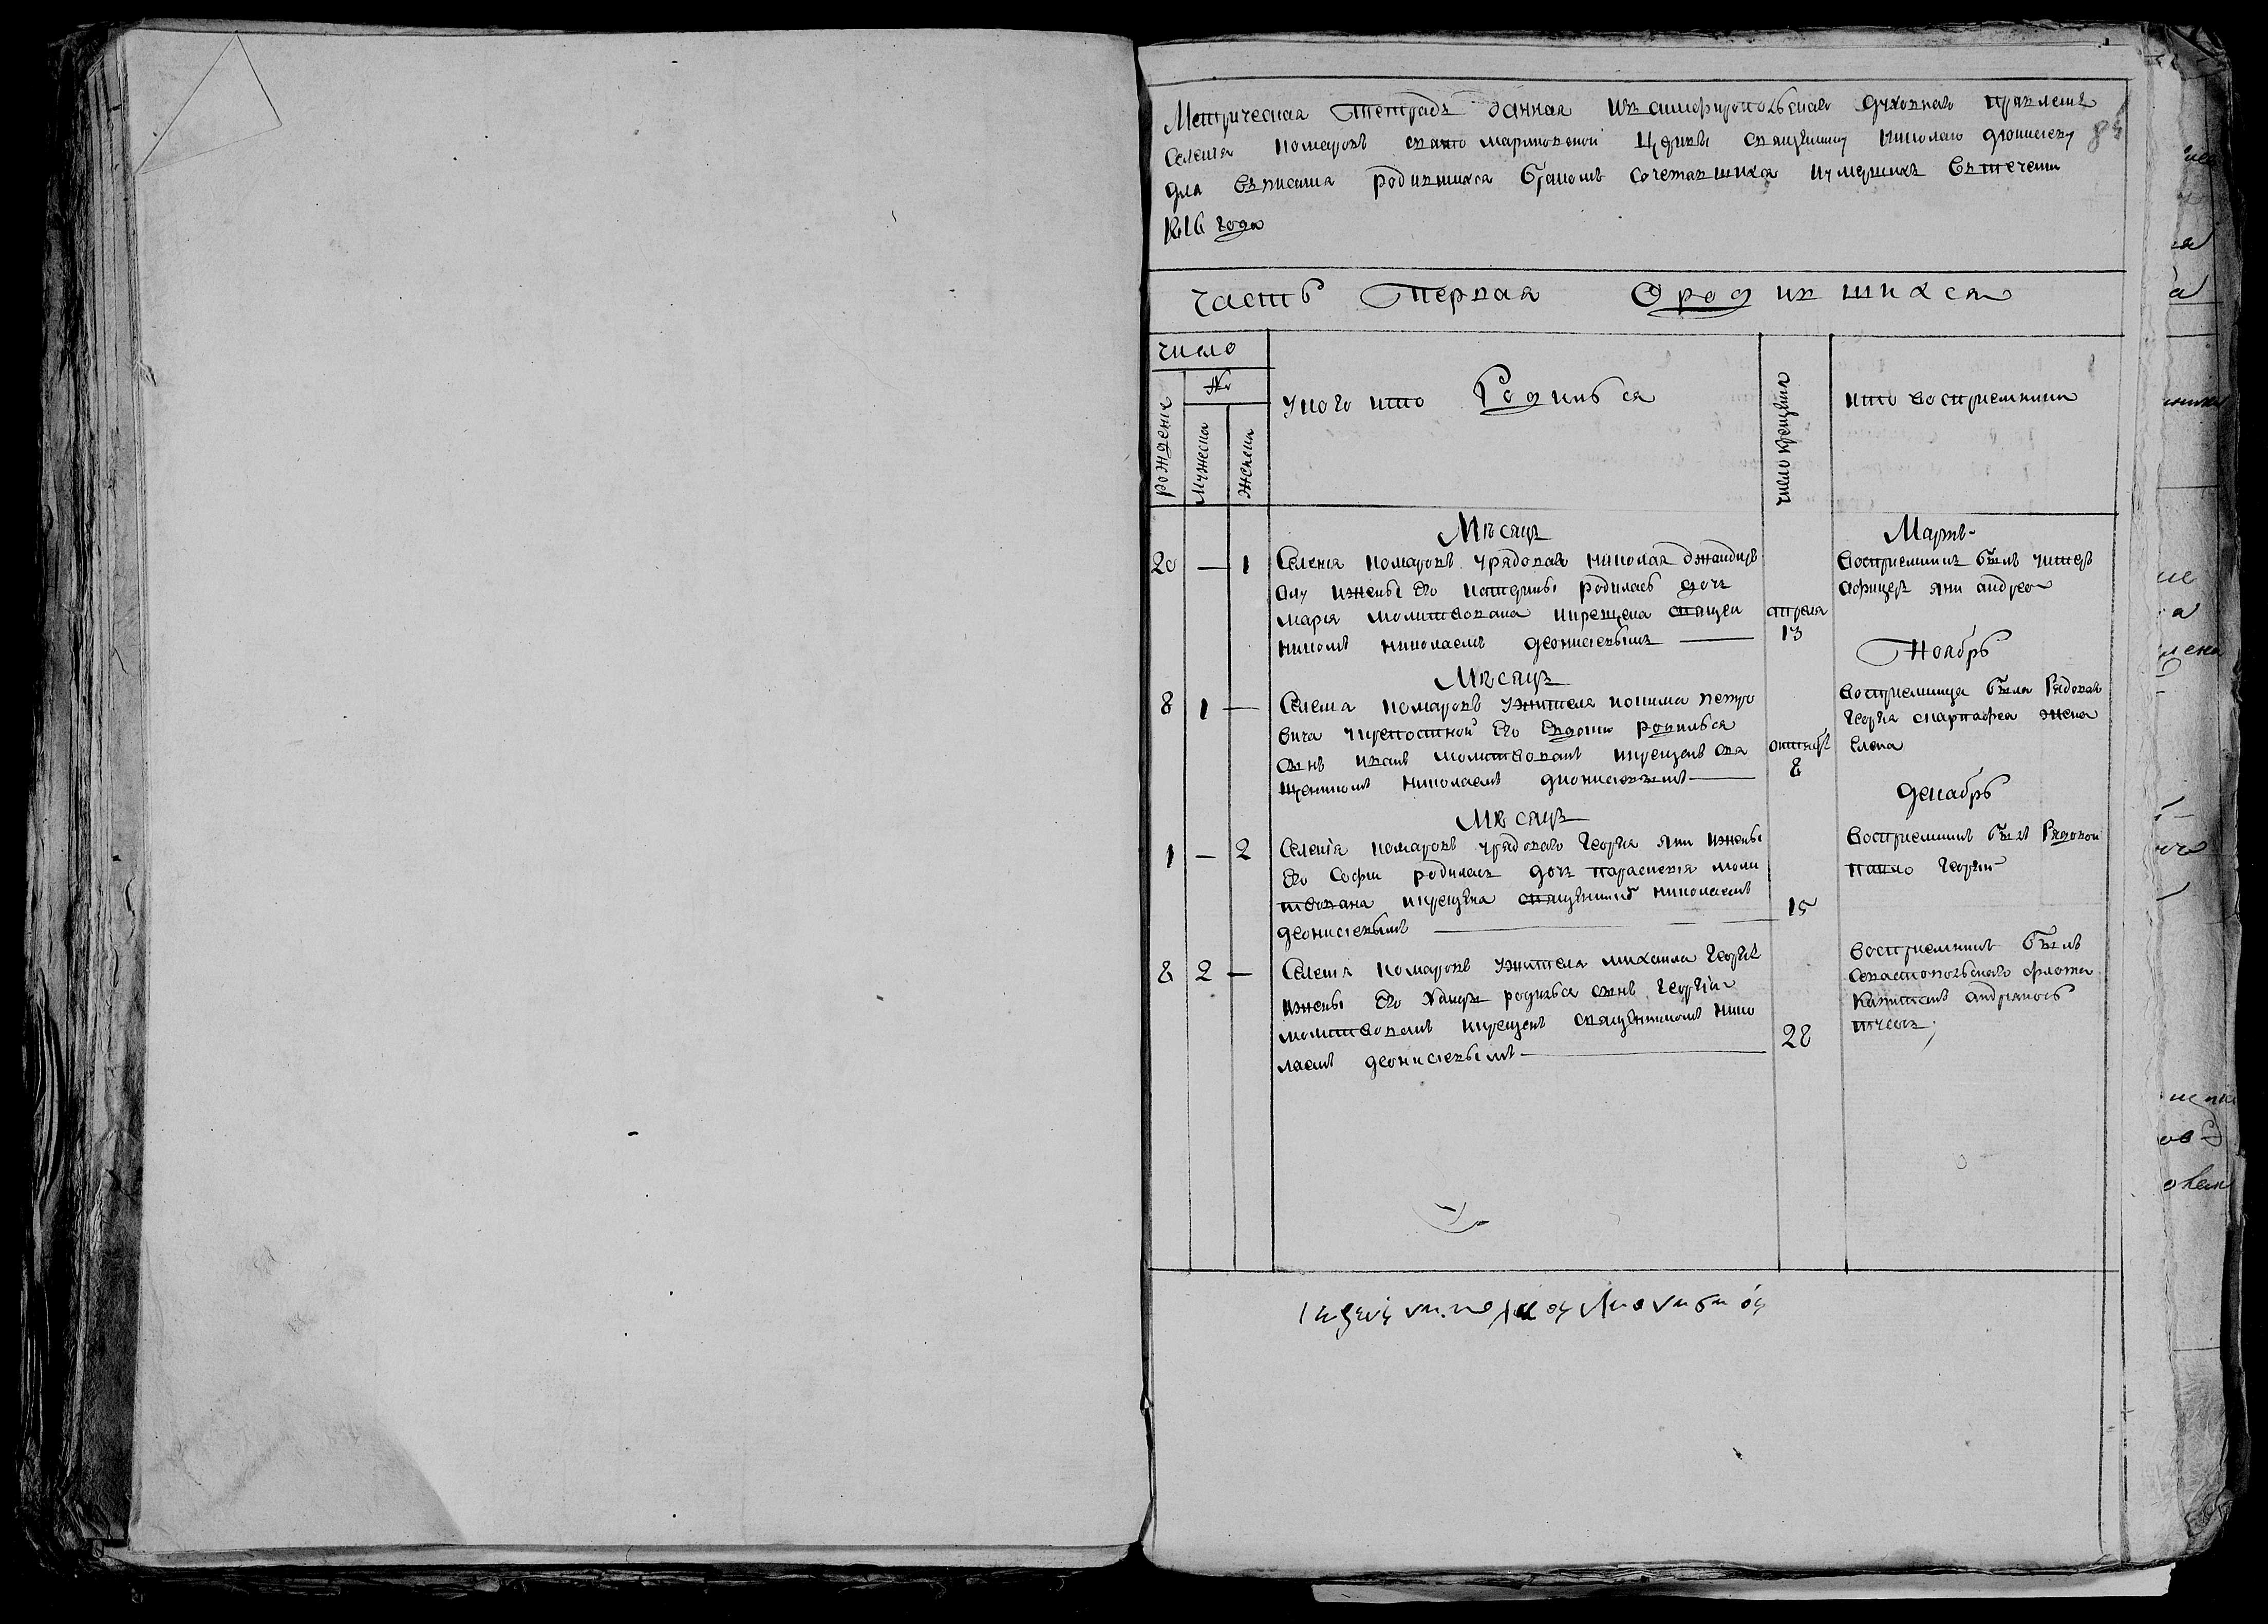 Метрическая тетрадь данная из симферопольскаго духовнаго правления
селения комаровъ свято мариновской церкви священику николаю дионисиеву
для вписания родившихся бракомъ сочетавшихся и умершихъ в течении
1816 года
84
часть первая О родившихся
число
№
рождения
мужеска
женска
у кого кто Родился
число крещения
кто восприемники
Месяцъ Мартъ
20 — 1 Селения комаровъ у рядовая николая джаидиръ
оглу и жены его катерины родилась дочь
мария молитвована и крещена священ
никомъ николаемъ дионисиевымъ
апреля
13
Восприемникъ былъ унтеръ
афицеръ яни андреев
Месяцъ Ноябрь
8 1 — Селения комаровъ у жителя кокима петро
вича у крепостной его евдокии родился
сынъ иванъ молитвованъ и крещенъ свя
щеникомъ николаемъ дионисиевымъ
октября
8
восприемница была Рядовая
георгия спартафея жена
Елена
Месяцъ Декабрь
1 — 2 Селения комаровъ у рядоваго георгия яни и жены
его софии родилась дочь параскевия моли
твована и крещена священикомъ николаемъ
дионисиевымъ
15
Восприемникъ былъ Рядовой
павло георгий
8 2 — Селения комаровъ у жителя михаила георги
и жены его родился сынъ георгий
молитвованъ и крещенъ священникомъ нико
лаемъ дионисиевымъ
28
восприемникъ былъ
севастопольскаго флота
капитанъ андрианось
ιερεύς νικολαος Διονισιού